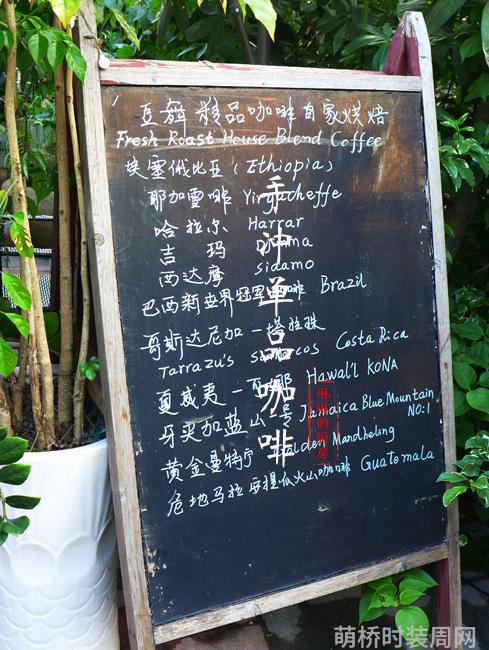 豆舞精品咖啡自家烘焙
Fresh Roast House Blend Coffee
埃塞俄比亚(Ethiopia)
耶加雪啡
哈拉尔 Harrar
吉玛
西达摩 Sidamo
巴西新世界 Brazil
哥斯达尼加一塔拉珠
Tarrazu's Costa Rica
夏威夷一 Hawai'l KONA
牙买加蓝山一号 Jamaica Blue Mountain
NO:1
黄金曼特宁 Mandheling
危地马拉安提瓜火山咖啡 Guatemala
手冲单品咖啡
琳琳的厨房
萌桥时装周网